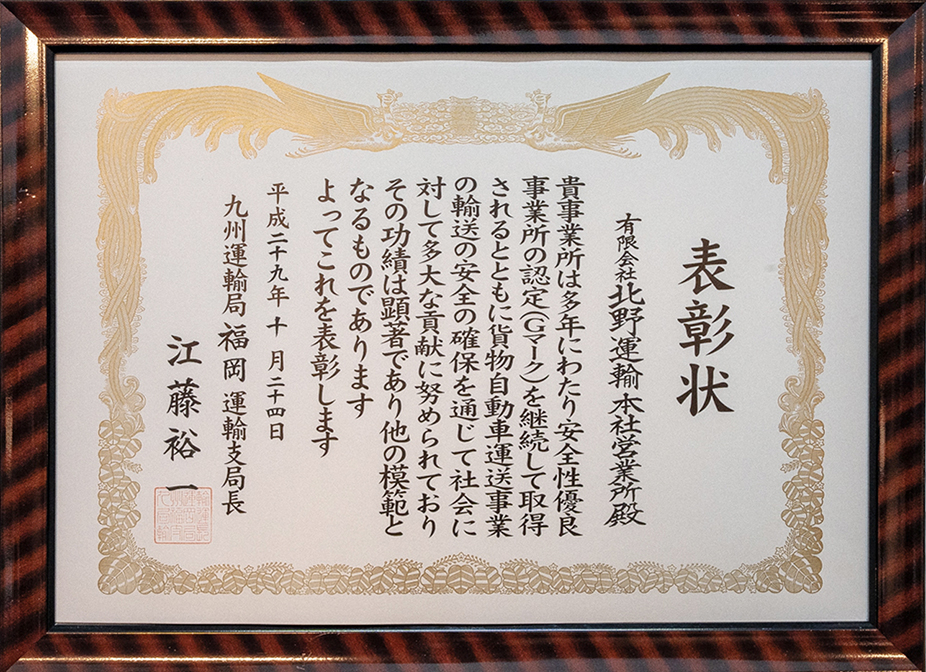 表彰状
有限会社北野運輸 本社営業所殿
貴事業所は多年にわたり安全性優良
事業所の認定(Gマーク)を継続して取得
されるとともに貨物自動車運送事業
の輸送の安全の確保を通じて社会に
対して多大な貢献に努められており
その功績は顕著であり他の模範と
なるものであります
よってこれを表彰します
平成二十九年 十 月二十四日
九州運輸局 福岡 運輸支局長
江藤裕一